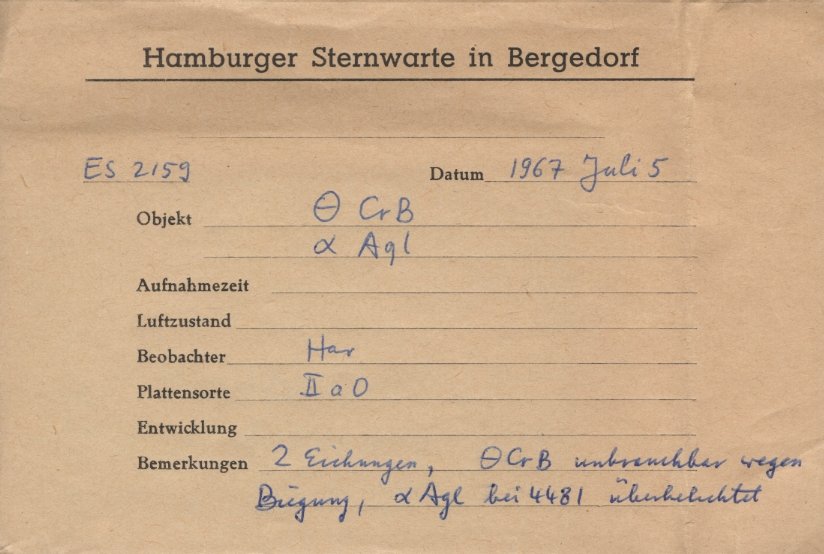 Hamburger Sternwarte in Bergedorf
ES 2159 Datum 1967 Juli 5
Objekt Θ CrB
α Aql
Aufnahmezeit
Luftzustand
Beobachter Har
Plattensorte II a O
Entwicklung
Bemerkungen 2 Eichungen, ΘCrB unbrauchbar wegen
Biegung, α Aql bei 4481 überbelichtet